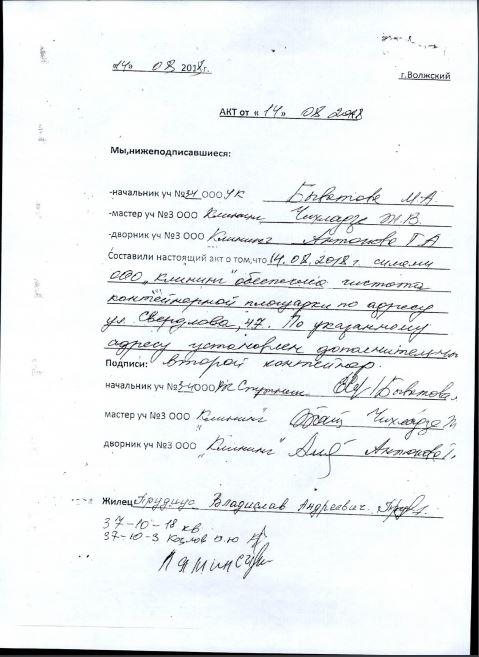 «14» 08 2018г.
г.Волжский
АКТ от « 14» 08 2018
Мы,нижеподписавшиеся:
-начальник уч №34 ООО УК Быватова М.А.
-мастер уч №3 ООО Клининг Чихладзе Ж.В.
-дворник уч №3 ООО Клининг Антонова Г.А
Составили настоящий акт о том,что 14.08.2018 г. силами
ООО „Клининг" обеспечена чистота
контейнерной площадки по адресу
ул Свердлова, 47. По указанному
адресу установлен дополнительн
Подписи: второй контейнер.
начальник уч №34 ООО УК Спутник Быватова
мастер уч №3 ООО „Клининг" Чихладзе Ж
дворник уч №3 ООО „Клининг" Антонова Г.
Жилец Владислав Андреевич.
37-10-18 кв
37-10-3 Козлов О.Ю